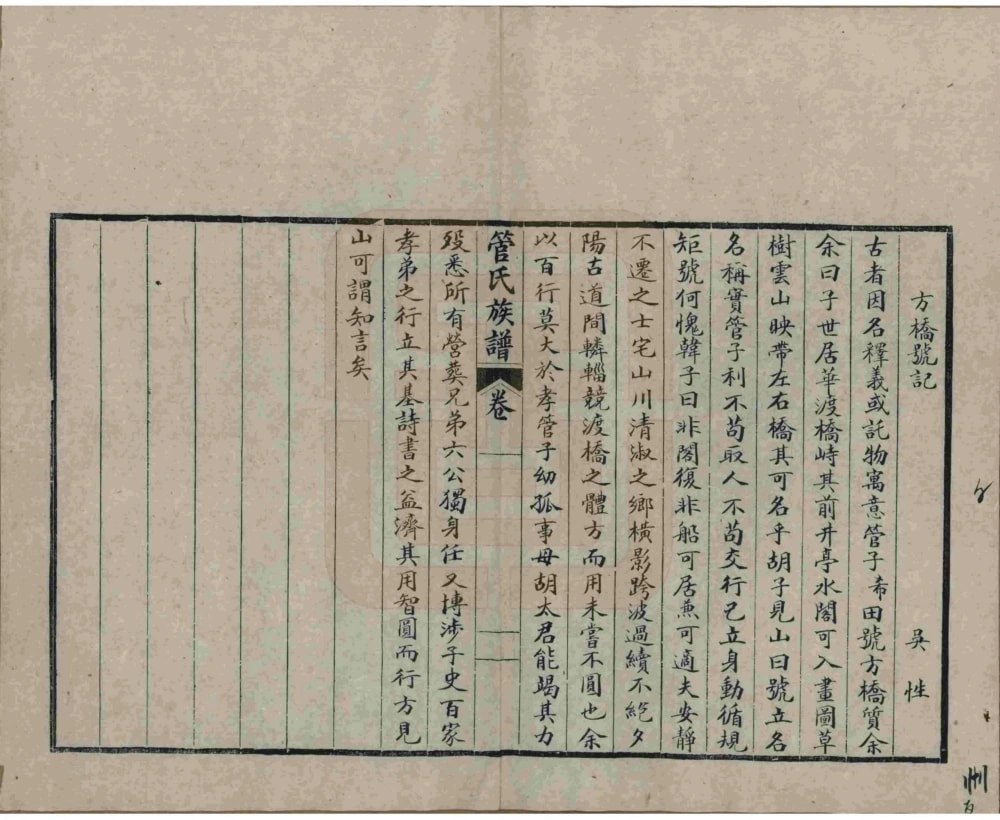 方橋號記 吳性
古者因名釋義或託物寓意管子希田號方橋質余
余曰子世居華渡橋峙其前井亭水閣可入畫圖草
樹雲山映帶左右橋其可名乎胡子見山曰號立名
名稱實管子利不苟取人不苟交行己立身動循規
矩號何愧韓子曰非閣復非船可居兼可適夫安靜
不遷之士宅山川清淑之鄉橫影跨波過續不絕夕
陽古道間轔輜競渡橋之體方而用未嘗不圓也余
以百行莫大於孝管子幼孤事母胡太君能竭其力
管氏族譜 卷
歿悉所有營葬兄弟六公獨身任又博涉子史百家
孝弟之行立其基詩書之益濟其用智圓而行方見
山可謂知言矣